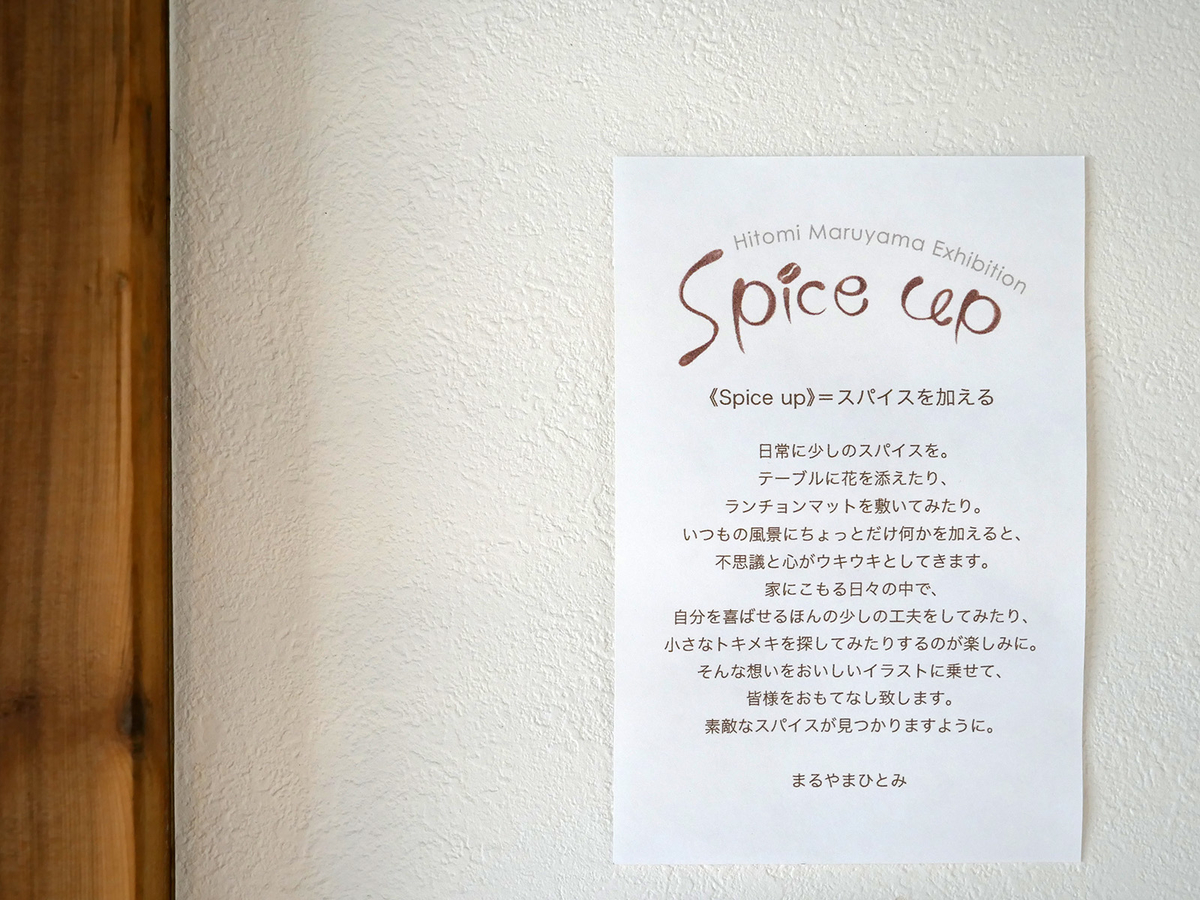 Hitomi Maruyama Exhibition
Spice up
《Spice up》＝スパイスを加える
日常に少しのスパイスを。
テーブルに花を添えたり、
ランチョンマットを敷いてみたり。
いつもの風景にちょっとだけ何かを加えると、
不思議と心がウキウキとしてきます。
家にこもる日々の中で、
自分を喜ばせるほんの少しの工夫をしてみたり、
小さなトキメキを探してみたりするのが楽しみに。
そんな想いをおいしいイラストに乗せて、
皆様をおもてなし致します。
素敵なスパイスが見つかりますように。
まるやまひとみ